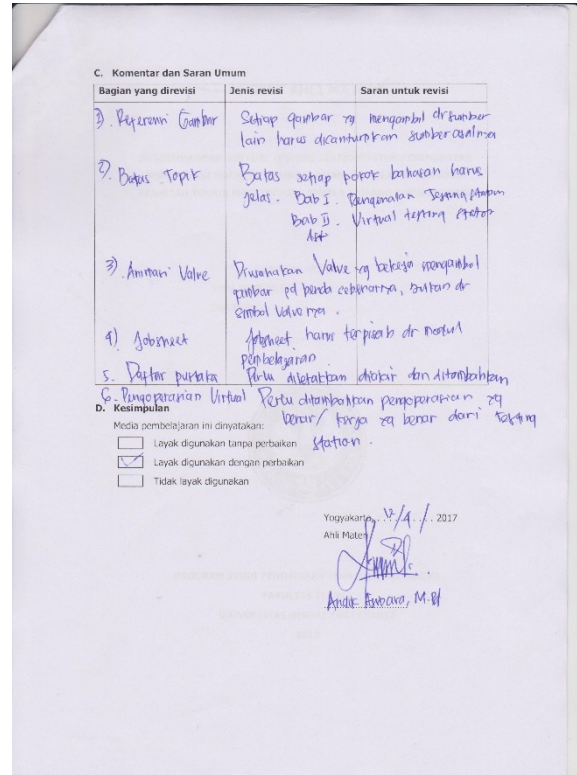 C. Komentar dan Saran Umum
Bagian yang direvisi Jenis revisi Saran untuk revisi
1). Referensi Gambar Setiap gambar yg mengambil dr sumber
lain harus dicantumkan sumber asalnya
2). Batas Topik Batas setiap pokok bahasan harus
jelas. Bab I. Pengenalan Testing Station
Bab II. Virtual testing station
3). Animasi Valve Diusahakan Valve yg bekerja mengambil
gambar pd benda sebenarnya, bukan dr
simbol Valve nya.
4) Jobsheet Jobsheet harus terpisah dr modul
pembelajaran.
5. Daftar pustaka Perlu diletakkan diakhir dan ditambahkan
6. Pengoperasian Virtual Perlu ditambahkan pengoperasian yg
benar / kerja yg benar dari testing
station.
D. Kesimpulan
Media pembelajaran ini dinyatakan:
Layak digunakan tanpa perbaikan
Layak digunakan dengan perbaikan
Tidak layak digunakan
Yogyakarta, 12/4/ 2017
Ahli Materi
M.Pd